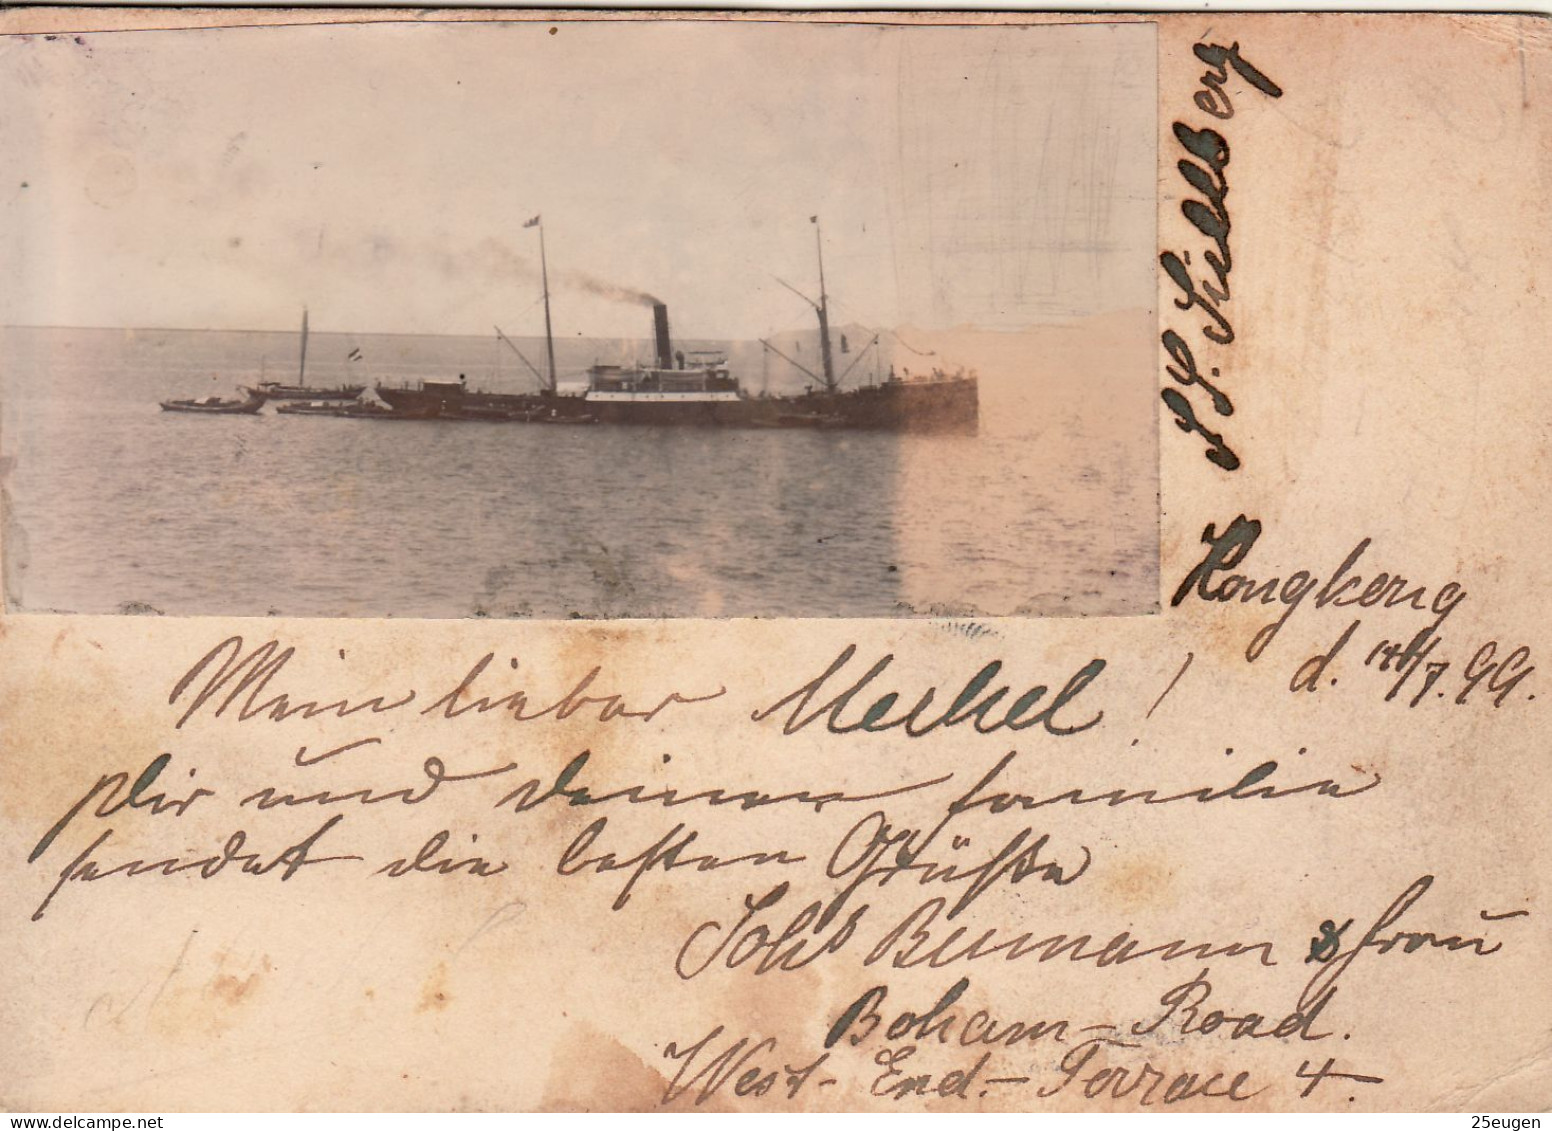 S.S. Süllberg
Hongkong
d. 14/7. 99.
Mein lieber Merkel!
Dir und deiner Familie
sendet die besten Grüße
Johs Baumann & Frau
Boham-Road.
West-End.-Terrace 4.
25eugen